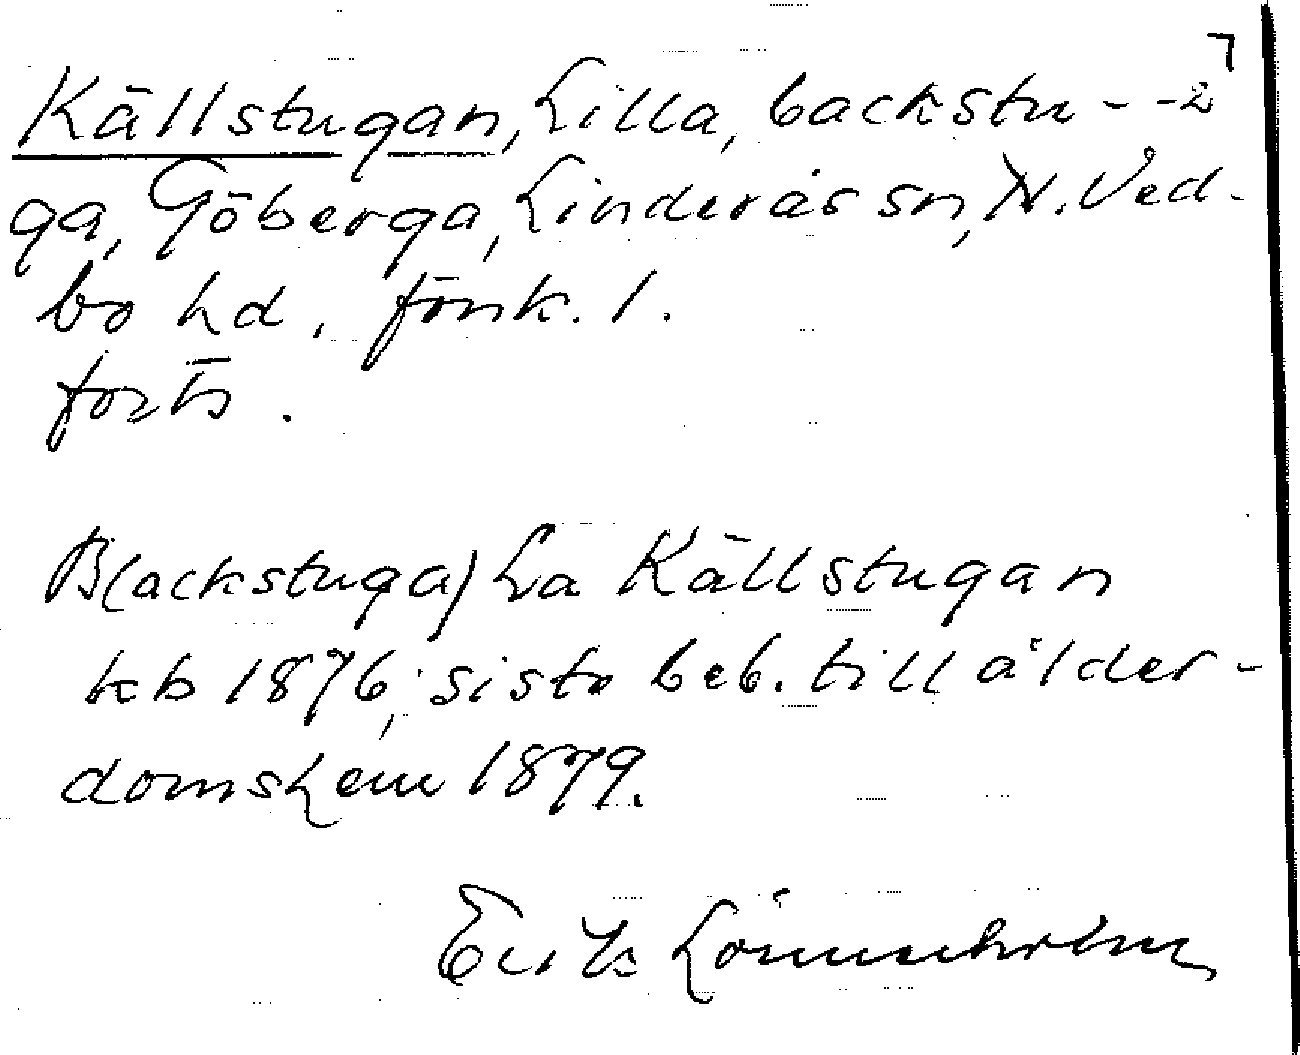 Källstugan, Lilla, backstu- -2
ga, Göberga, Linderås sn, N. Ved-
bo hd. Jönk. l.
forts.
B(ackstuga) La Källstugan
kb 1876, siste beb. till ålder-
domshem 1879.
Erik Lönnerholm